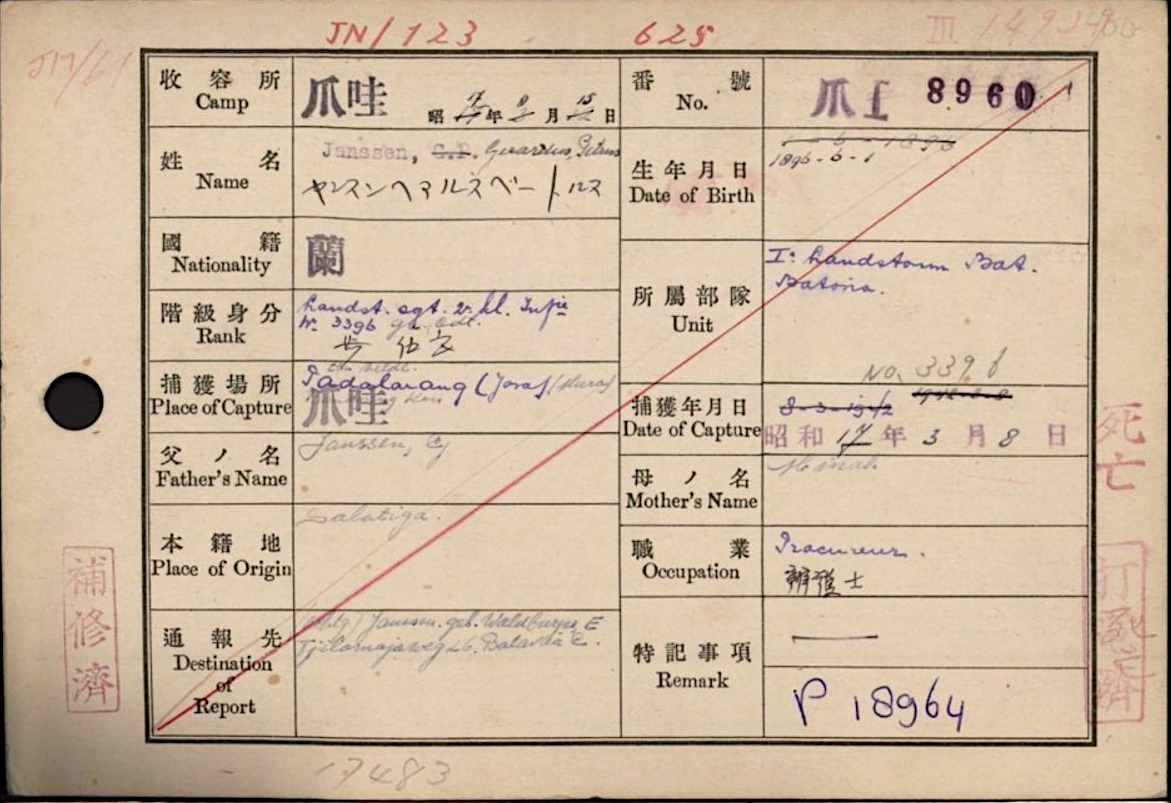 JN/123
625
III 149
JN/61
收容所
Camp
爪哇
昭 17年 8月 15日
番號
No.
爪I 8960
姓名
Name
Janssen, G.P. Gerardus, Petrus
ヤンスンヘアルズベートルス
生年月日
Date of Birth
1-6-1896
1896-6-1
國籍
Nationality
蘭
階級身分
Rank
Landst. sgt. 2e kl. Infie
Nr. 3396
所屬部隊
Unit
Ie Landstorm Bat.
Batavia.
No. 3396
捕獲場所
Place of Capture
Padalarang (Java)
爪哇
捕獲年月日
Date of Capture
8-3-1942
昭和 17年 3月 8日
父ノ名
Father's Name
Janssen,
母ノ名
Mother's Name
Minah
本籍地
Place of Origin
Salatiga.
職業
Occupation
Procureur.
辯護士
通報先
Destination
of
Report
Janssen. geb. Waldburger, E
Batavia C.
特記事項
Remark
P 18964
補修濟
死亡
17483